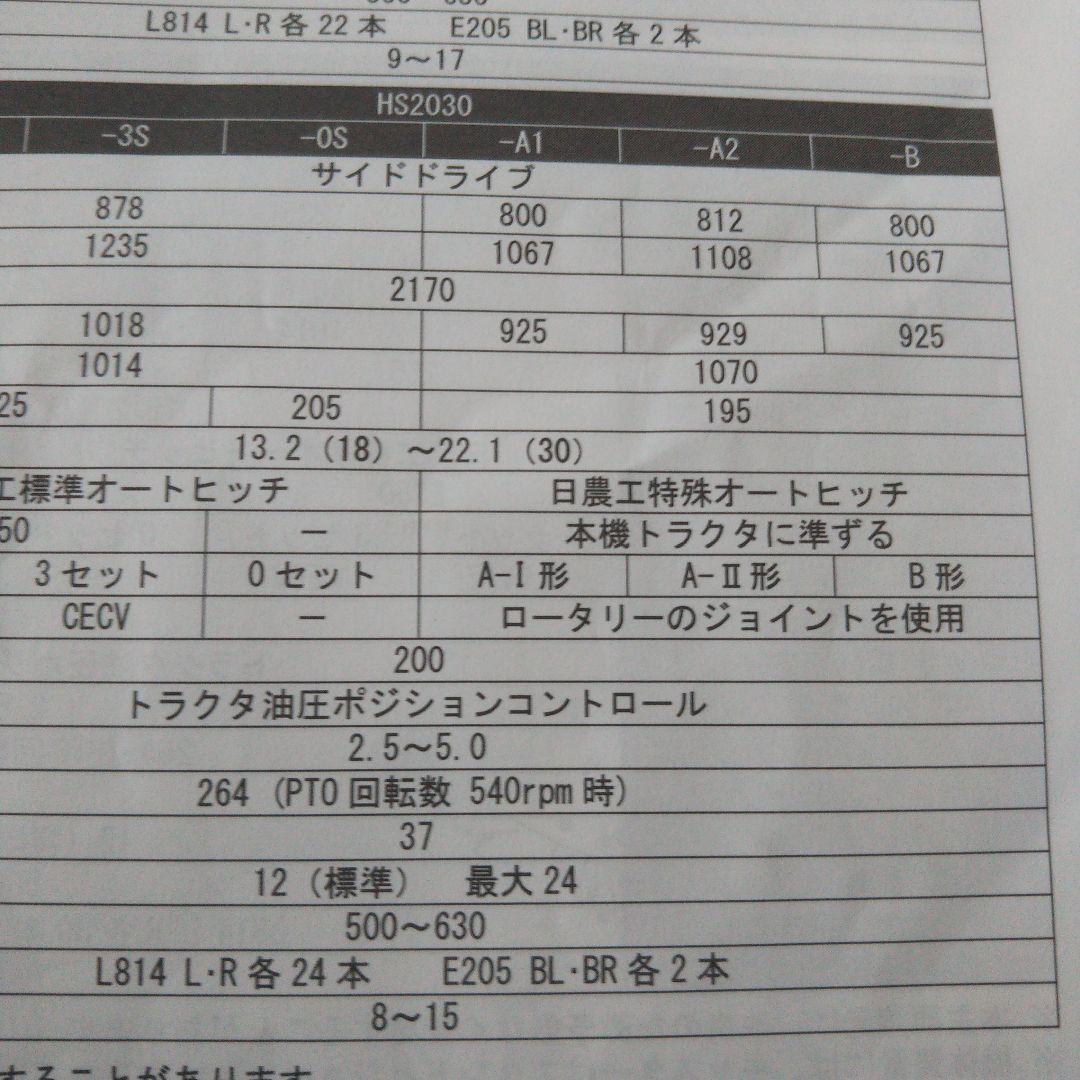 L814 L・R各22本 E205 BL・BR各2本
9～17
HS2030
-3S -0S -A1 -A2 -B
サイドドライブ
878 800 812 800
1235 1067 1108 1067
2170
1018 925 929 925
1014 1070
25 205 195
13.2（18）～22.1（30）
工標準オートヒッチ 日農工特殊オートヒッチ
50 ― 本機トラクタに準ずる
3セット 0セット A-Ⅰ形 A-Ⅱ形 B形
CECV ― ロータリーのジョイントを使用
200
トラクタ油圧ポジションコントロール
2.5～5.0
264（PTO回転数 540rpm時）
37
12（標準） 最大24
500～630
L814 L・R各24本 E205 BL・BR各2本
8～15
することがあります